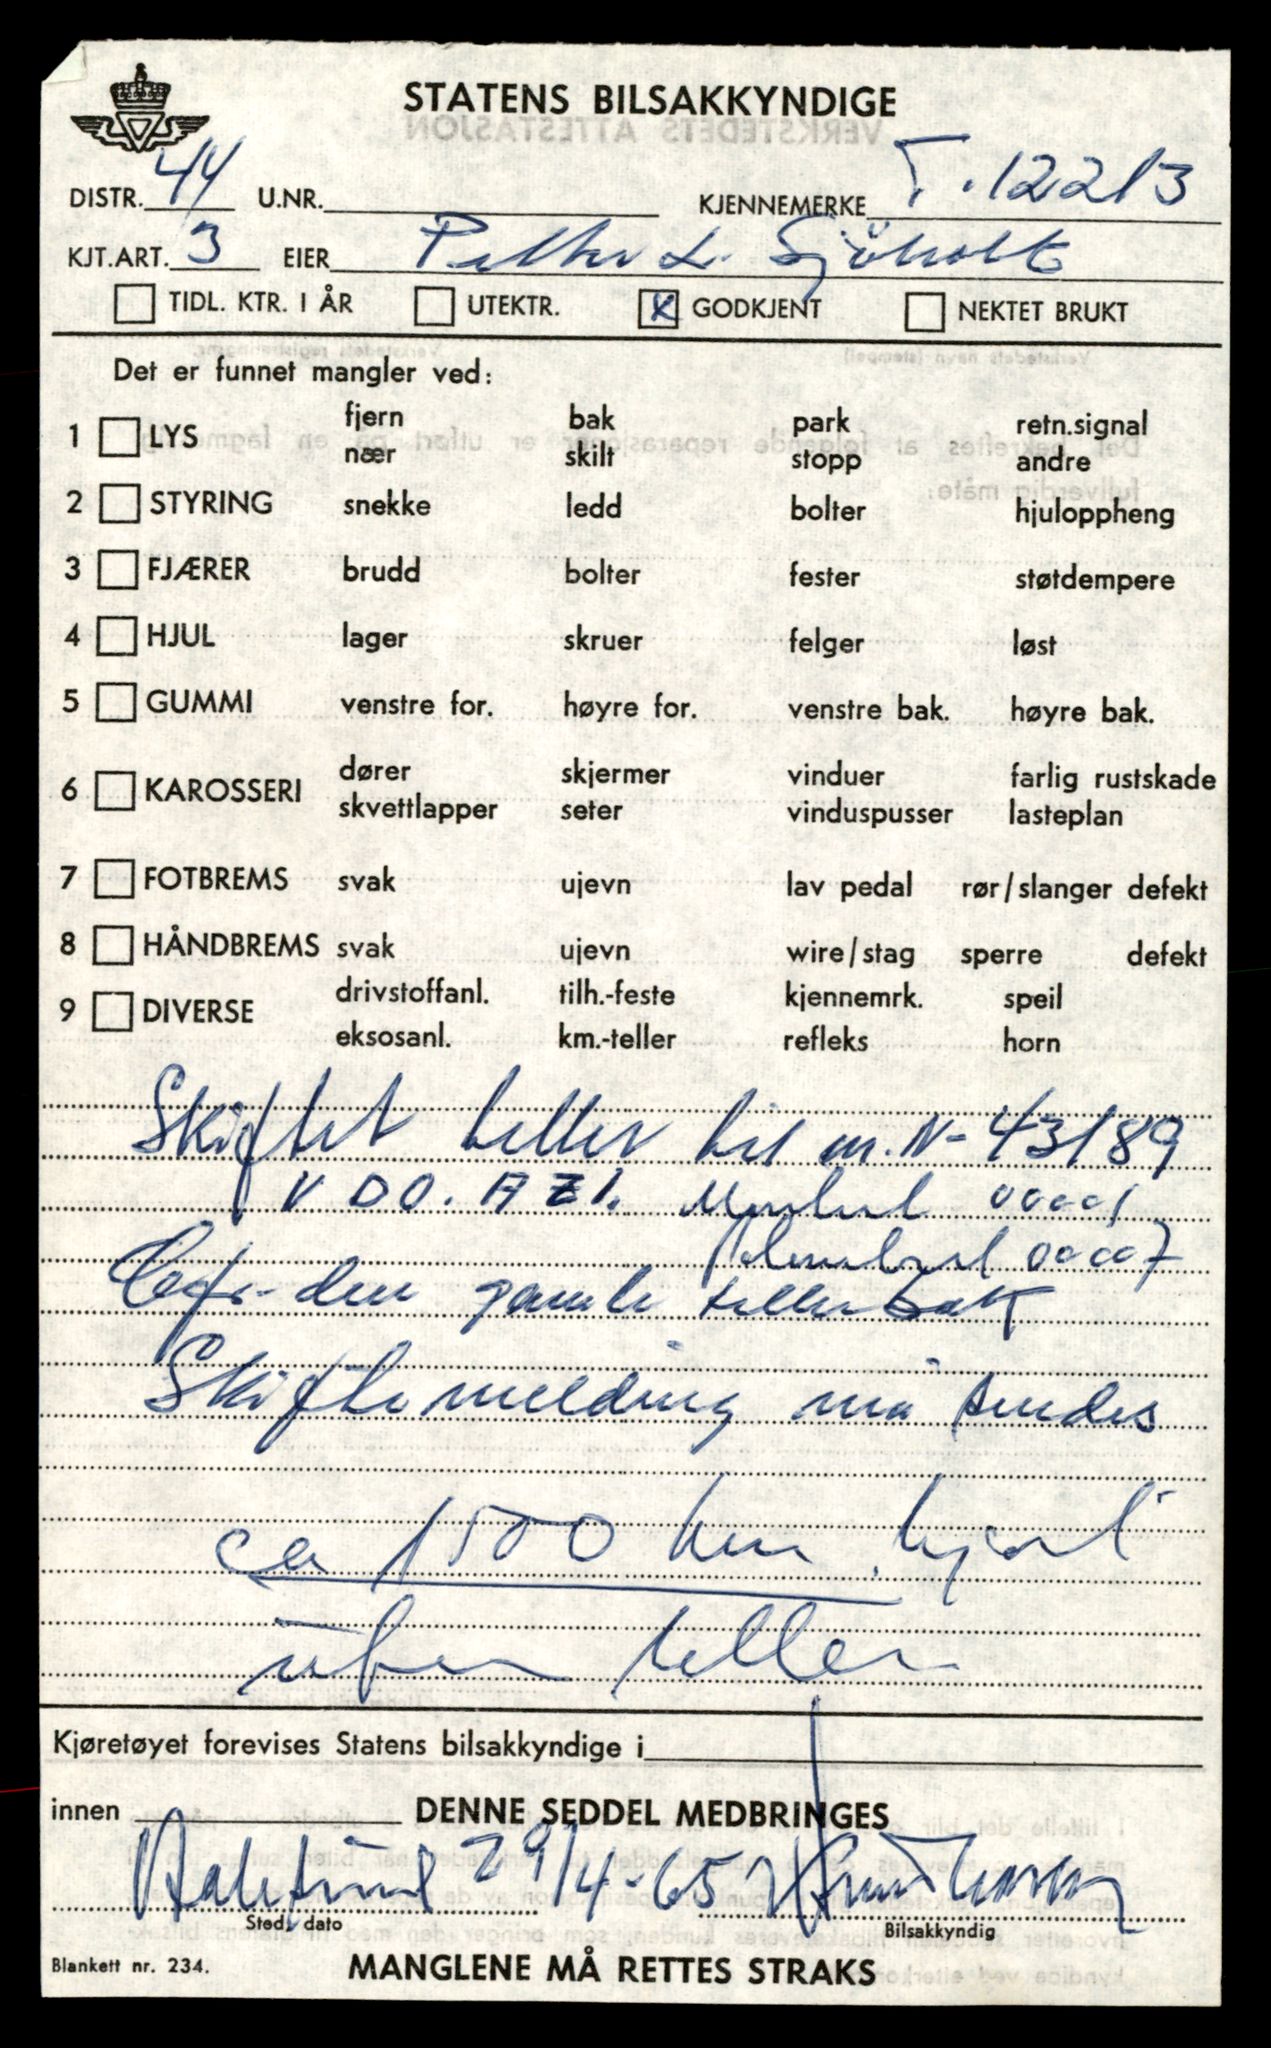 STATENS BILSAKKYNDIGE
DISTR. 44 U.NR. KJENNEMERKE T. 12213
KJT.ART. 3 EIER Petter L. Sjöholt
TIDL. KTR. I ÅR UTEKTR. X GODKJENT NEKTET BRUKT
Det er funnet mangler ved:
1 LYS fjern bak park retn.signal
nær skilt stopp andre
2 STYRING snekke ledd bolter hjuloppheng
3 FJÆRER brudd bolter fester støtdempere
4 HJUL lager skruer felger løst
5 GUMMI venstre for. høyre for. venstre bak. høyre bak.
6 KAROSSERI dører skjermer vinduer farlig rustskade
skvettlapper seter vinduspusser lasteplan
7 FOTBREMS svak ujevn lav pedal rør/slanger defekt
8 HÅNDBREMS svak ujevn wire/stag sperre defekt
9 DIVERSE drivstoffanl. tilh.-feste kjennemrk. speil
eksosanl. km.-teller refleks horn
Skiftet teller til m.N- 43189
V DO. 00001
00007
den gamle teller
Skiftemelding må sendes
ca 1500 km kjørt
uten teller
Kjøretøyet forevises Statens bilsakkyndige i
innen DENNE SEDDEL MEDBRINGES
29/4-65
Sted, dato Bilsakkyndig
Blankett nr. 234. MANGLENE MÅ RETTES STRAKS